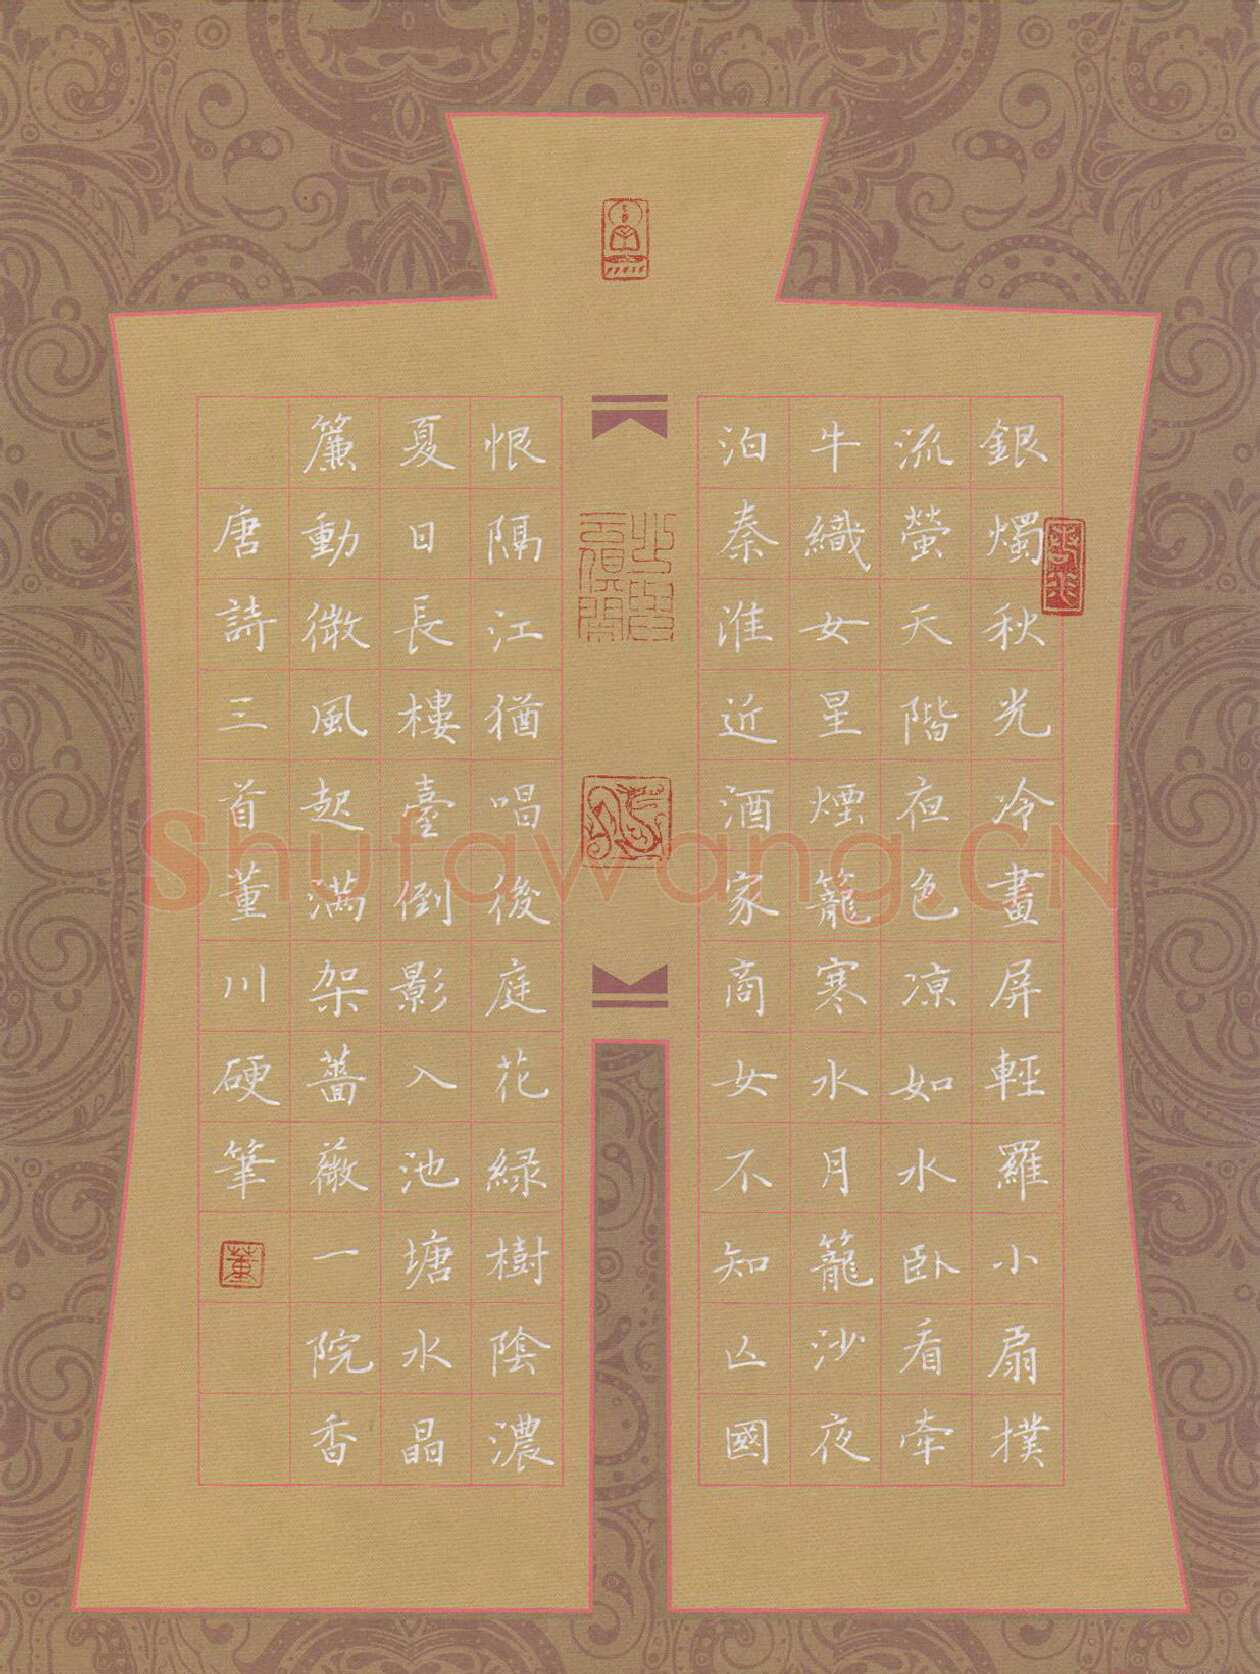 銀燭秋光冷畫屏輕羅小扇撲
流螢天階夜色凉如水臥看牽
牛織女星煙籠寒水月籠沙夜
泊秦淮近酒家商女不知亡國
恨隔江猶唱後庭花綠樹陰濃
夏日長樓臺倒影入池塘水晶
簾動微風起滿架薔薇一院香
唐詩三首董川硬筆
董
Shufawang.CN